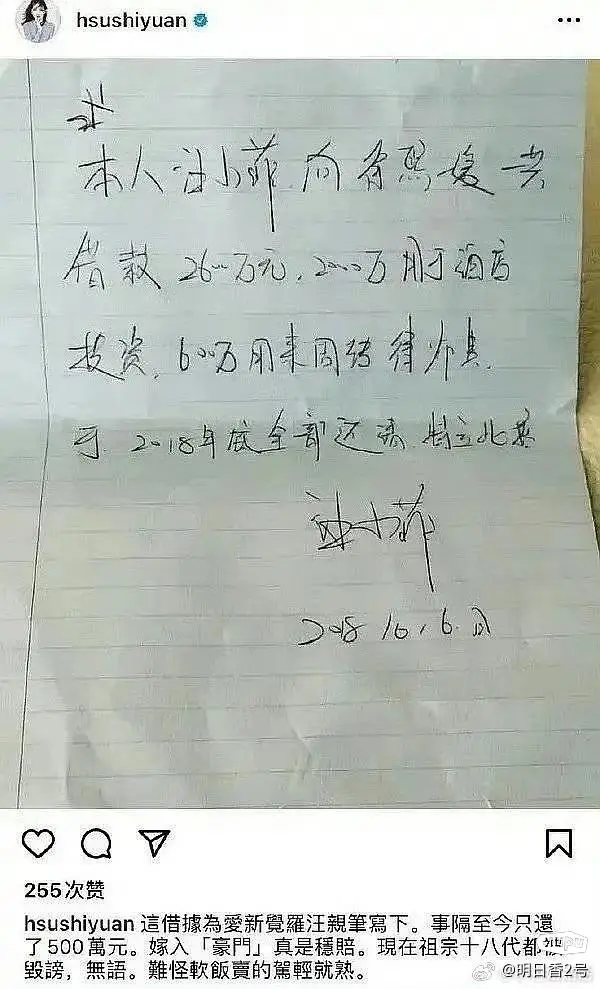 hsushiyuan
本人汪小菲.向徐熙媛共
借款2600万元.2000万用于酒店
投资,600万用来周转律师费.
于2018年底全部还清.特立此据
汪小菲
2018.10.6.日
255次赞
hsushiyuan 這借據為愛新覺羅汪親筆寫下。事隔至今只還
了500萬元。嫁入「豪門」真是穩賠。現在祖宗十八代都被
毀謗,無語。難怪軟飯賣的駕輕就熟。
@明日香2号